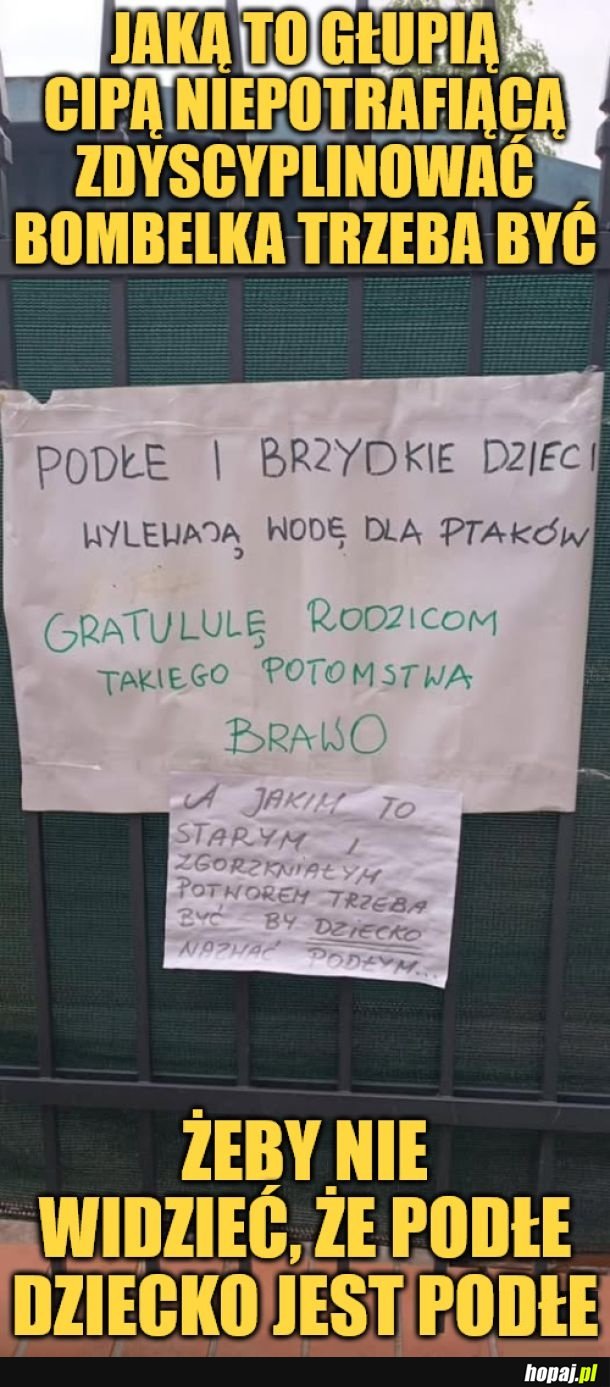 JAKĄ TO GŁUPIĄ
CIPĄ NIEPOTRAFIĄCĄ
ZDYSCYPLINOWAĆ
BOMBELKA TRZEBA BYĆ
PODŁE I BRZYDKIE DZIECI
WYLEWAJĄ WODĘ DLA PTAKÓW
GRATULULĘ RODZICOM
TAKIEGO POTOMSTWA
BRAWO
A JAKIM TO
STARYM I
ZGORZKNIAŁYM
POTWOREM TRZEBA
BYĆ BY DZIECKO
NAZWAĆ PODŁYM...
ŻEBY NIE
WIDZIEĆ, ŻE PODŁE
DZIECKO JEST PODŁE
hopaj.pl